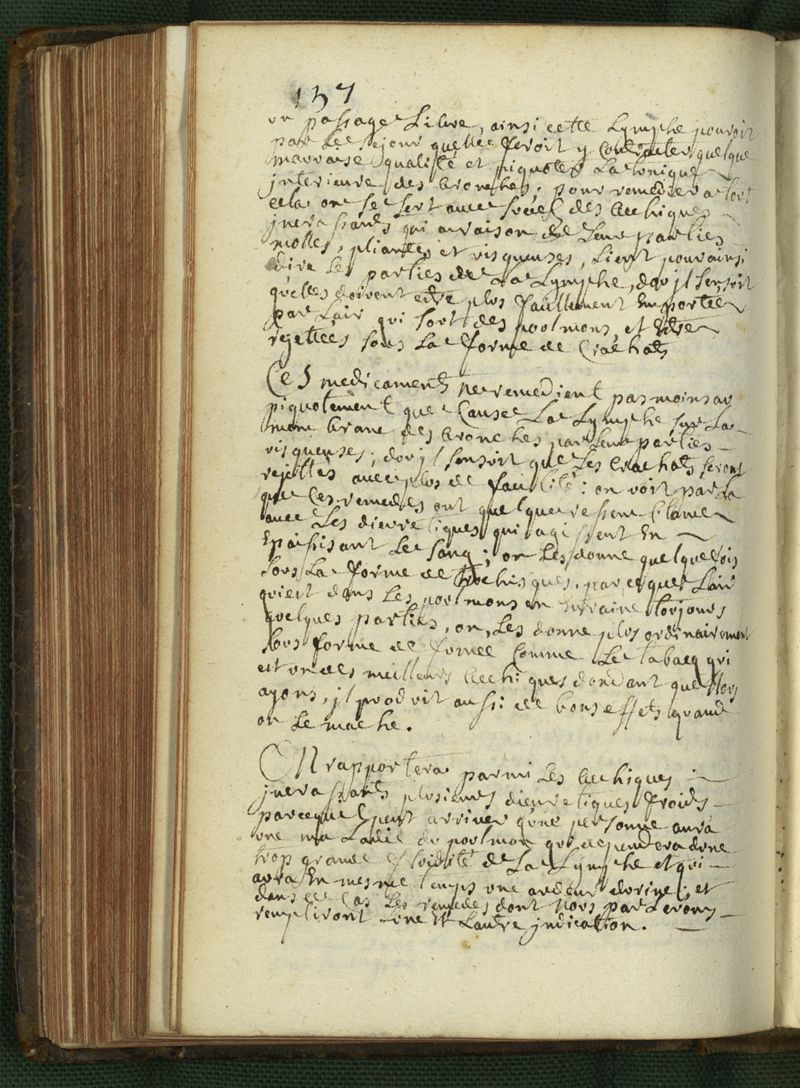 157
un passage Libre, ainsi cette Lymphe pouroit
par Le sejour quelle feroit y contracter quelque
mauvaise qualité et picoter La tunique
interieure des bronches; pour remedier a tout
cela on se sert avec succes des bechiques
incrassants qui a raison de Leurs parties
molles, pliantes et visqueuses, Lient pour ainsi
dire Les parties de La Lymphe, dou jl sensuit
quelles doivent estre plus facillement Emportées
par Lair qui sort des poolmons, et Estre
rejettées sous La forme de Crachats

Ces medicaments ne remedient pas moins au
piquotement que Cause La Lymphe sur La
membrane des bronches par Leurs parties
visqueuses; dou jl sensuit que Les Crachats seront
rejettés avec plus de facilité: on voit par La
que Ces remedes ont quelque ressemblance
avec Les diuretiques qui agissent En
Epaisisant Le sang; on Les donne quelquefois
sous La forme de trochisques, parceque Lair
qui est dans Les poolmons en Entraine toujours
quelques parties, on Les donne plus ordinairement
sous forme de fumée Comme Le tabacq qui
est un des meilleurs bechiques dont que Nous
ayons, jl produit aussi de bons effets quand
on Le mache.

On rapportera parmi Les bechiques
jncrassants plusieurs diuretiques froids
parcequil peut arriver qune personne aura
une maladie du poolmon qui dependera dune
trop grande fluidité de La Lymphe et qui
aura En mesme temps une ardeur durine; et
dans ce Cas Les remedes dont Nous parlerons
rempliront Lune et Lautre jndication.